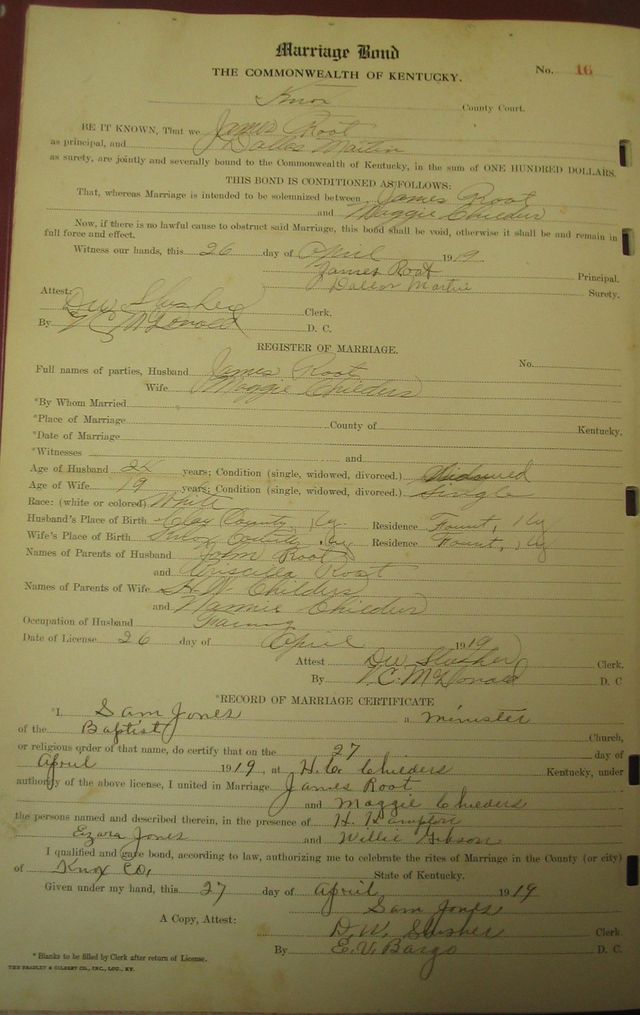 Marriage Bond
THE COMMONWEALTH OF KENTUCKY.
No. 16
Knox County Court.
BE IT KNOWN, That we James Root
as principal, and Dallas Martin
as surety, are jointly and severally bound to the Commonwealth of Kentucky, in the sum of ONE HUNDRED DOLLARS.
THIS BOND IS CONDITIONED AS FOLLOWS:
That, whereas Marriage is intended to be solemnized between James Root
and Maggie Childers
Now, if there is no lawful cause to obstruct said Marriage, this bond shall be void, otherwise it shall be and remain in
full force and effect.
Witness our hands, this 26 day of April 1919
James Root Principal.
Martin Surety.
Attest:
DW Slusher Clerk.
By McDonald D. C.
REGISTER OF MARRIAGE.
No.
Full names of parties, Husband James Root
Wife Maggie Childers
*By Whom Married
*Place of Marriage County of Kentucky.
*Date of Marriage
*Witnesses and
Age of Husband 24 years; Condition (single, widowed, divorced.) Widowed
Age of Wife 19 years; Condition (single, widowed, divorced.) Single
Race: (white or colored) White
Husband's Place of Birth Clay County, Ky Residence Fount, Ky
Wife's Place of Birth Knox County, Ky Residence Fount, Ky
Names of Parents of Husband John Root
and Priscilla Root
Names of Parents of Wife Childers
and Nannie Childers
Occupation of Husband Farming
Date of License 26 day of April 1919
Attest DW Slusher Clerk.
By McDonald D. C
*RECORD OF MARRIAGE CERTIFICATE
*I, Sam Jones a minister
of the Baptist Church,
or religious order of that name, do certify that on the 27 day of
April 1919, at H. C. Childers Kentucky, under
authority of the above license, I united in Marriage James Root
and Maggie Childers
the persons named and described therein, in the presence of H. Hampton
Ezara Jones and Willie Gibson
I qualified and gave bond, according to law, authorizing me to celebrate the rites of Marriage in the County (or city)
of Knox Co, State of Kentucky.
Given under my hand, this 27 day of April 1919
Sam Jones
A Copy, Attest: D. W. Slusher Clerk
By E. V. Bargo D. C.
* Blanks to be filled by Clerk after return of License.
THE BRADLEY & GILBERT CO., INC., LOU., KY.